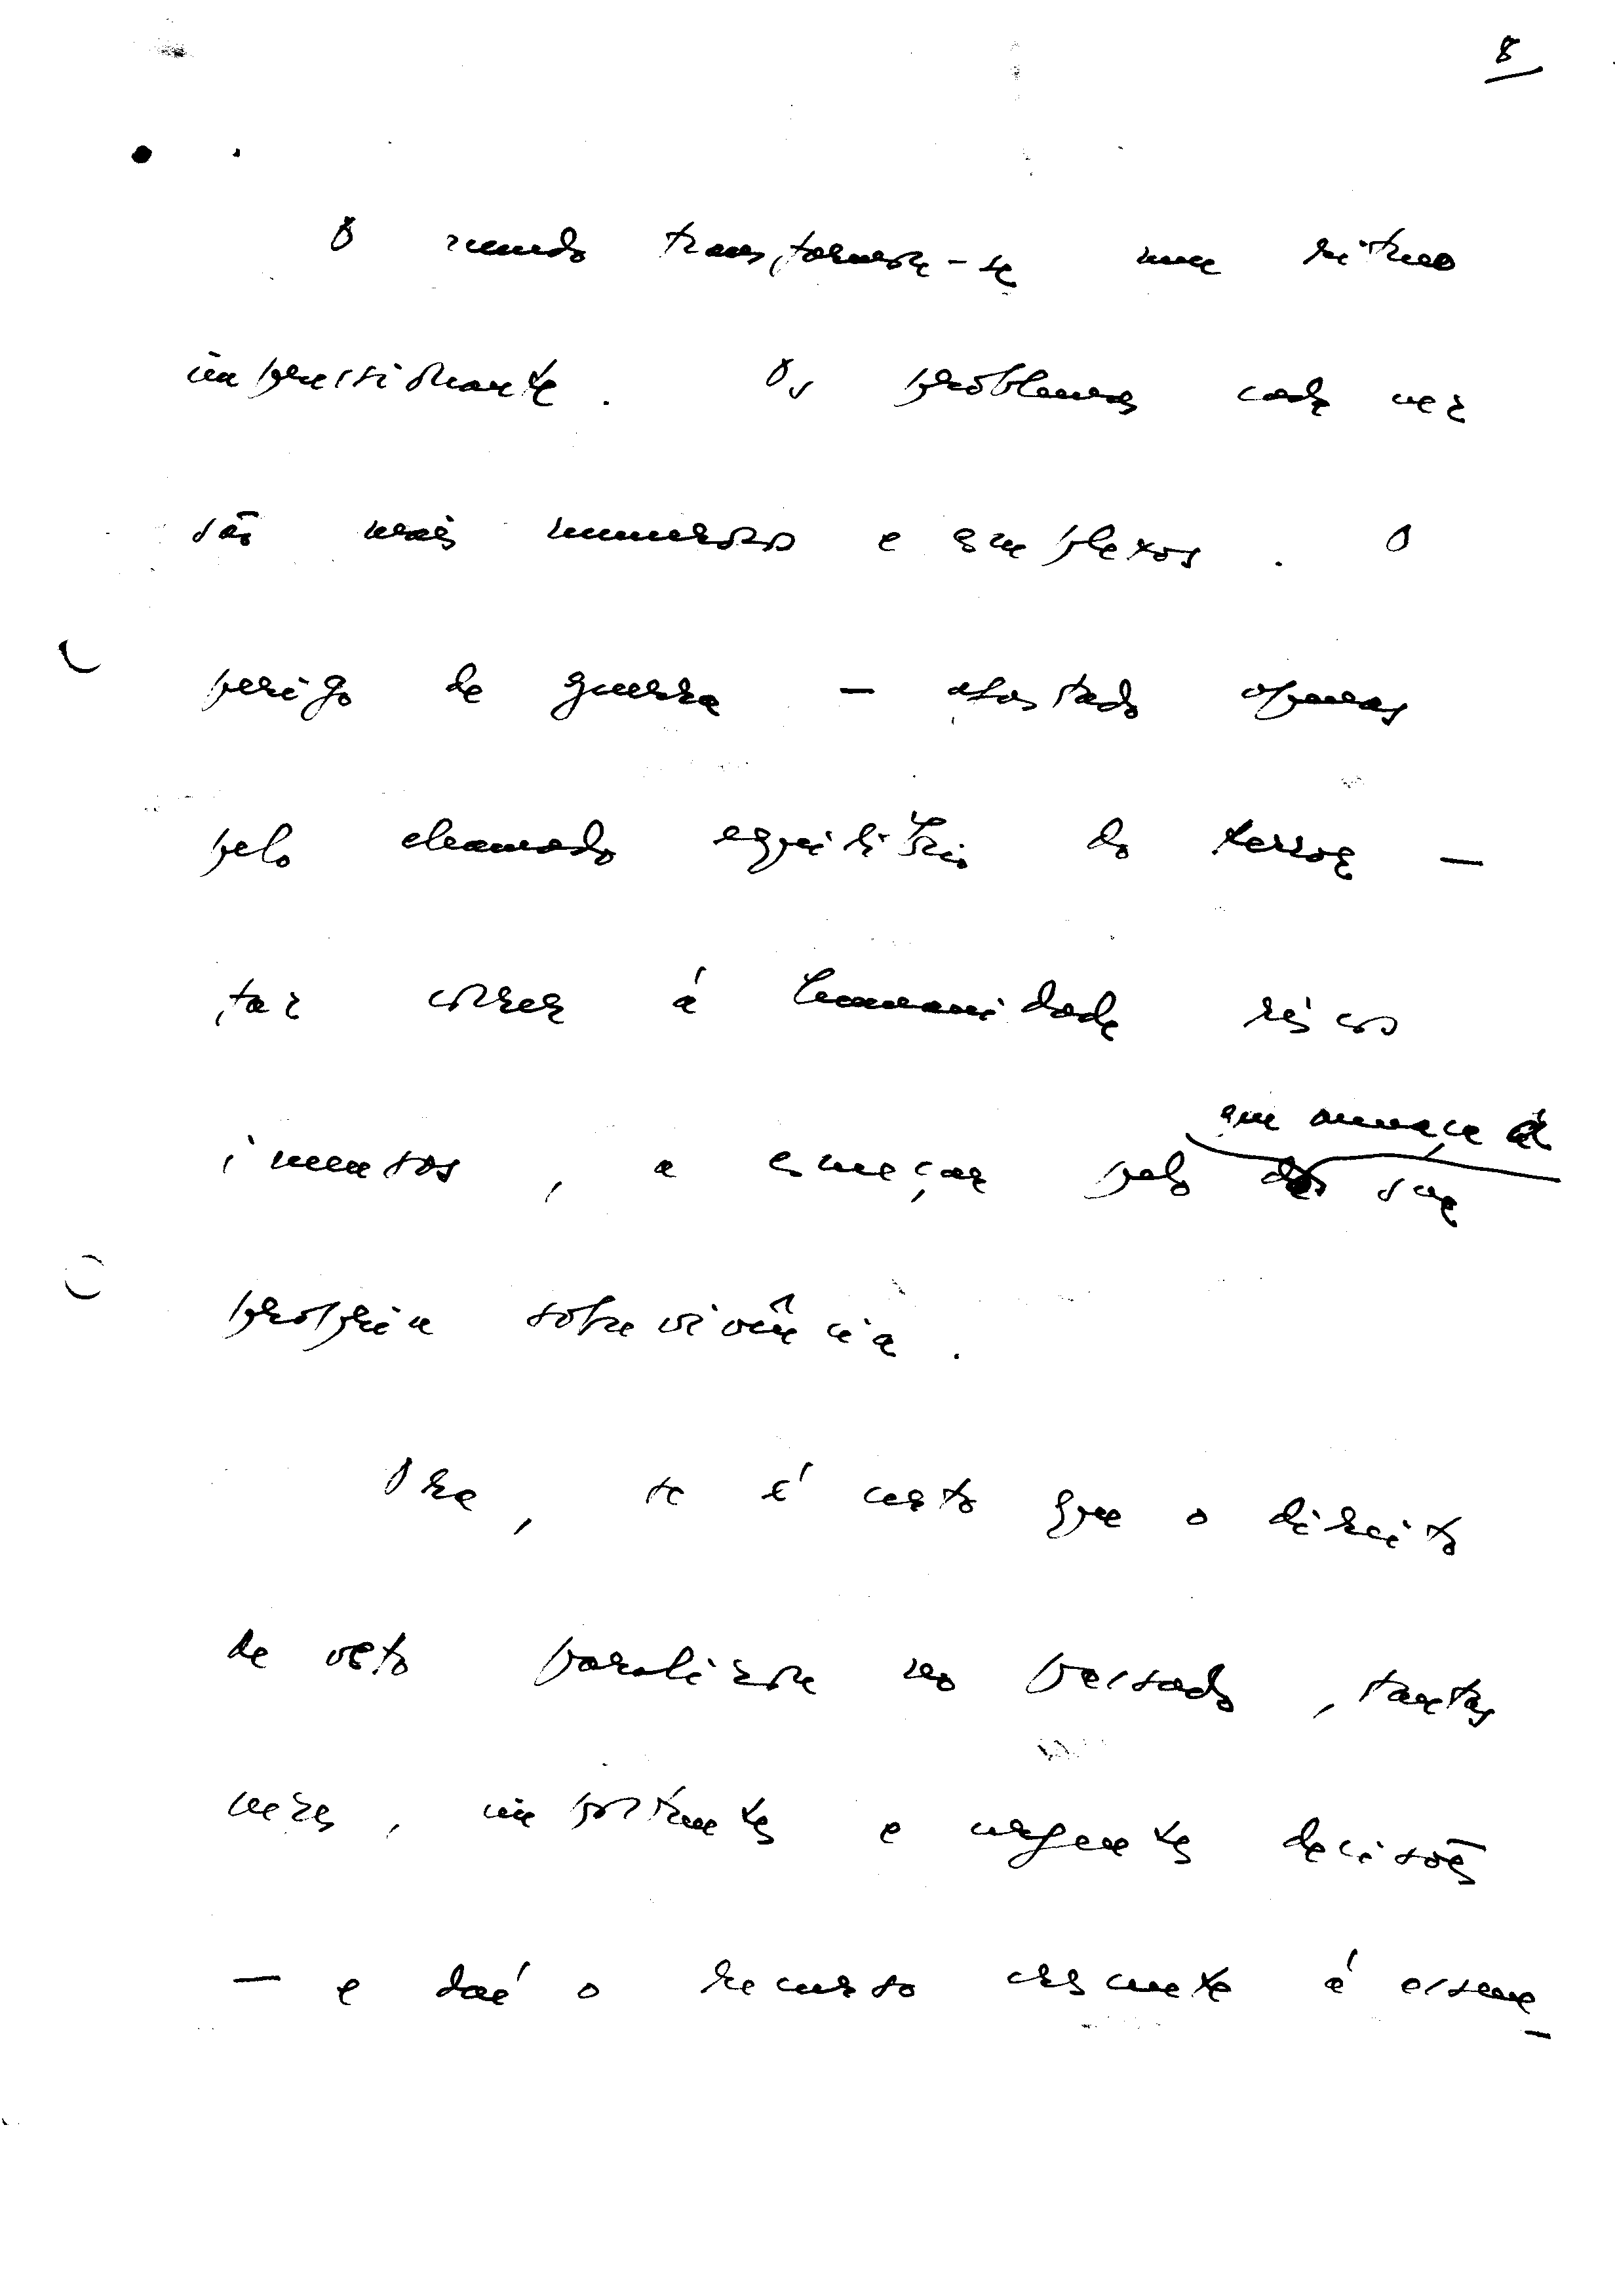 8
O mundo transforma-se num ritmo
impressionante. Os problemas cada vez
são mais numerosos e complexos. O
perigo de guerra — afastado apenas
pelo chamado equilíbrio do terror —
faz correr à humanidade riscos
que ameaça a
imensos, a começar pelo sua
própria sobrevivência.
Ora, se é certo que o direito
de veto paralisou no passado, tantas
vezes, importantes e urgentes decisões
— e daí o recurso crescente à assem-